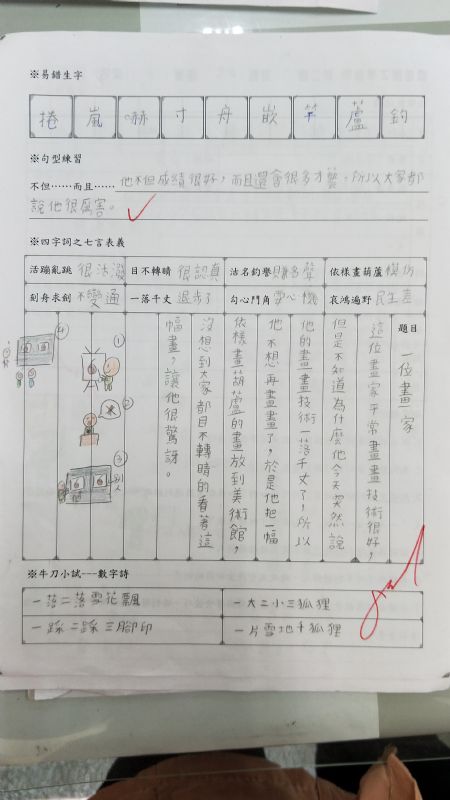 ※易錯生字
捲 嵐 嚇 寸 舟 嵌 竿 蘆 鈞
※句型練習
不但……而且……他不但成績很好，而且還會很多才藝，所以大家都
說他很厲害。
※四字詞之七言表義
活蹦亂跳 很活潑 目不轉睛 很認真 沽名釣譽 賺名聲 依樣畫葫蘆 模仿
刻舟求劍 不變通 一落千丈 退步了 勾心鬥角 耍心機 哀鴻遍野 民生差
題目 一位畫家
這位畫家平常畫畫技術很好，
但是不知道為什麼他今天突然說
他的畫畫技術一落千丈了，所以
他不想再畫畫了，於是他把一幅
依樣畫葫蘆的畫放到美術館，
沒想到大家都目不轉睛的看著這
幅畫，讓他很驚訝。
①
②
③
④
別人
※牛刀小試---數字詩
一落二落雪花飄 一大二小三狐狸
一踩二踩三腳印 一片雪地千狐狸